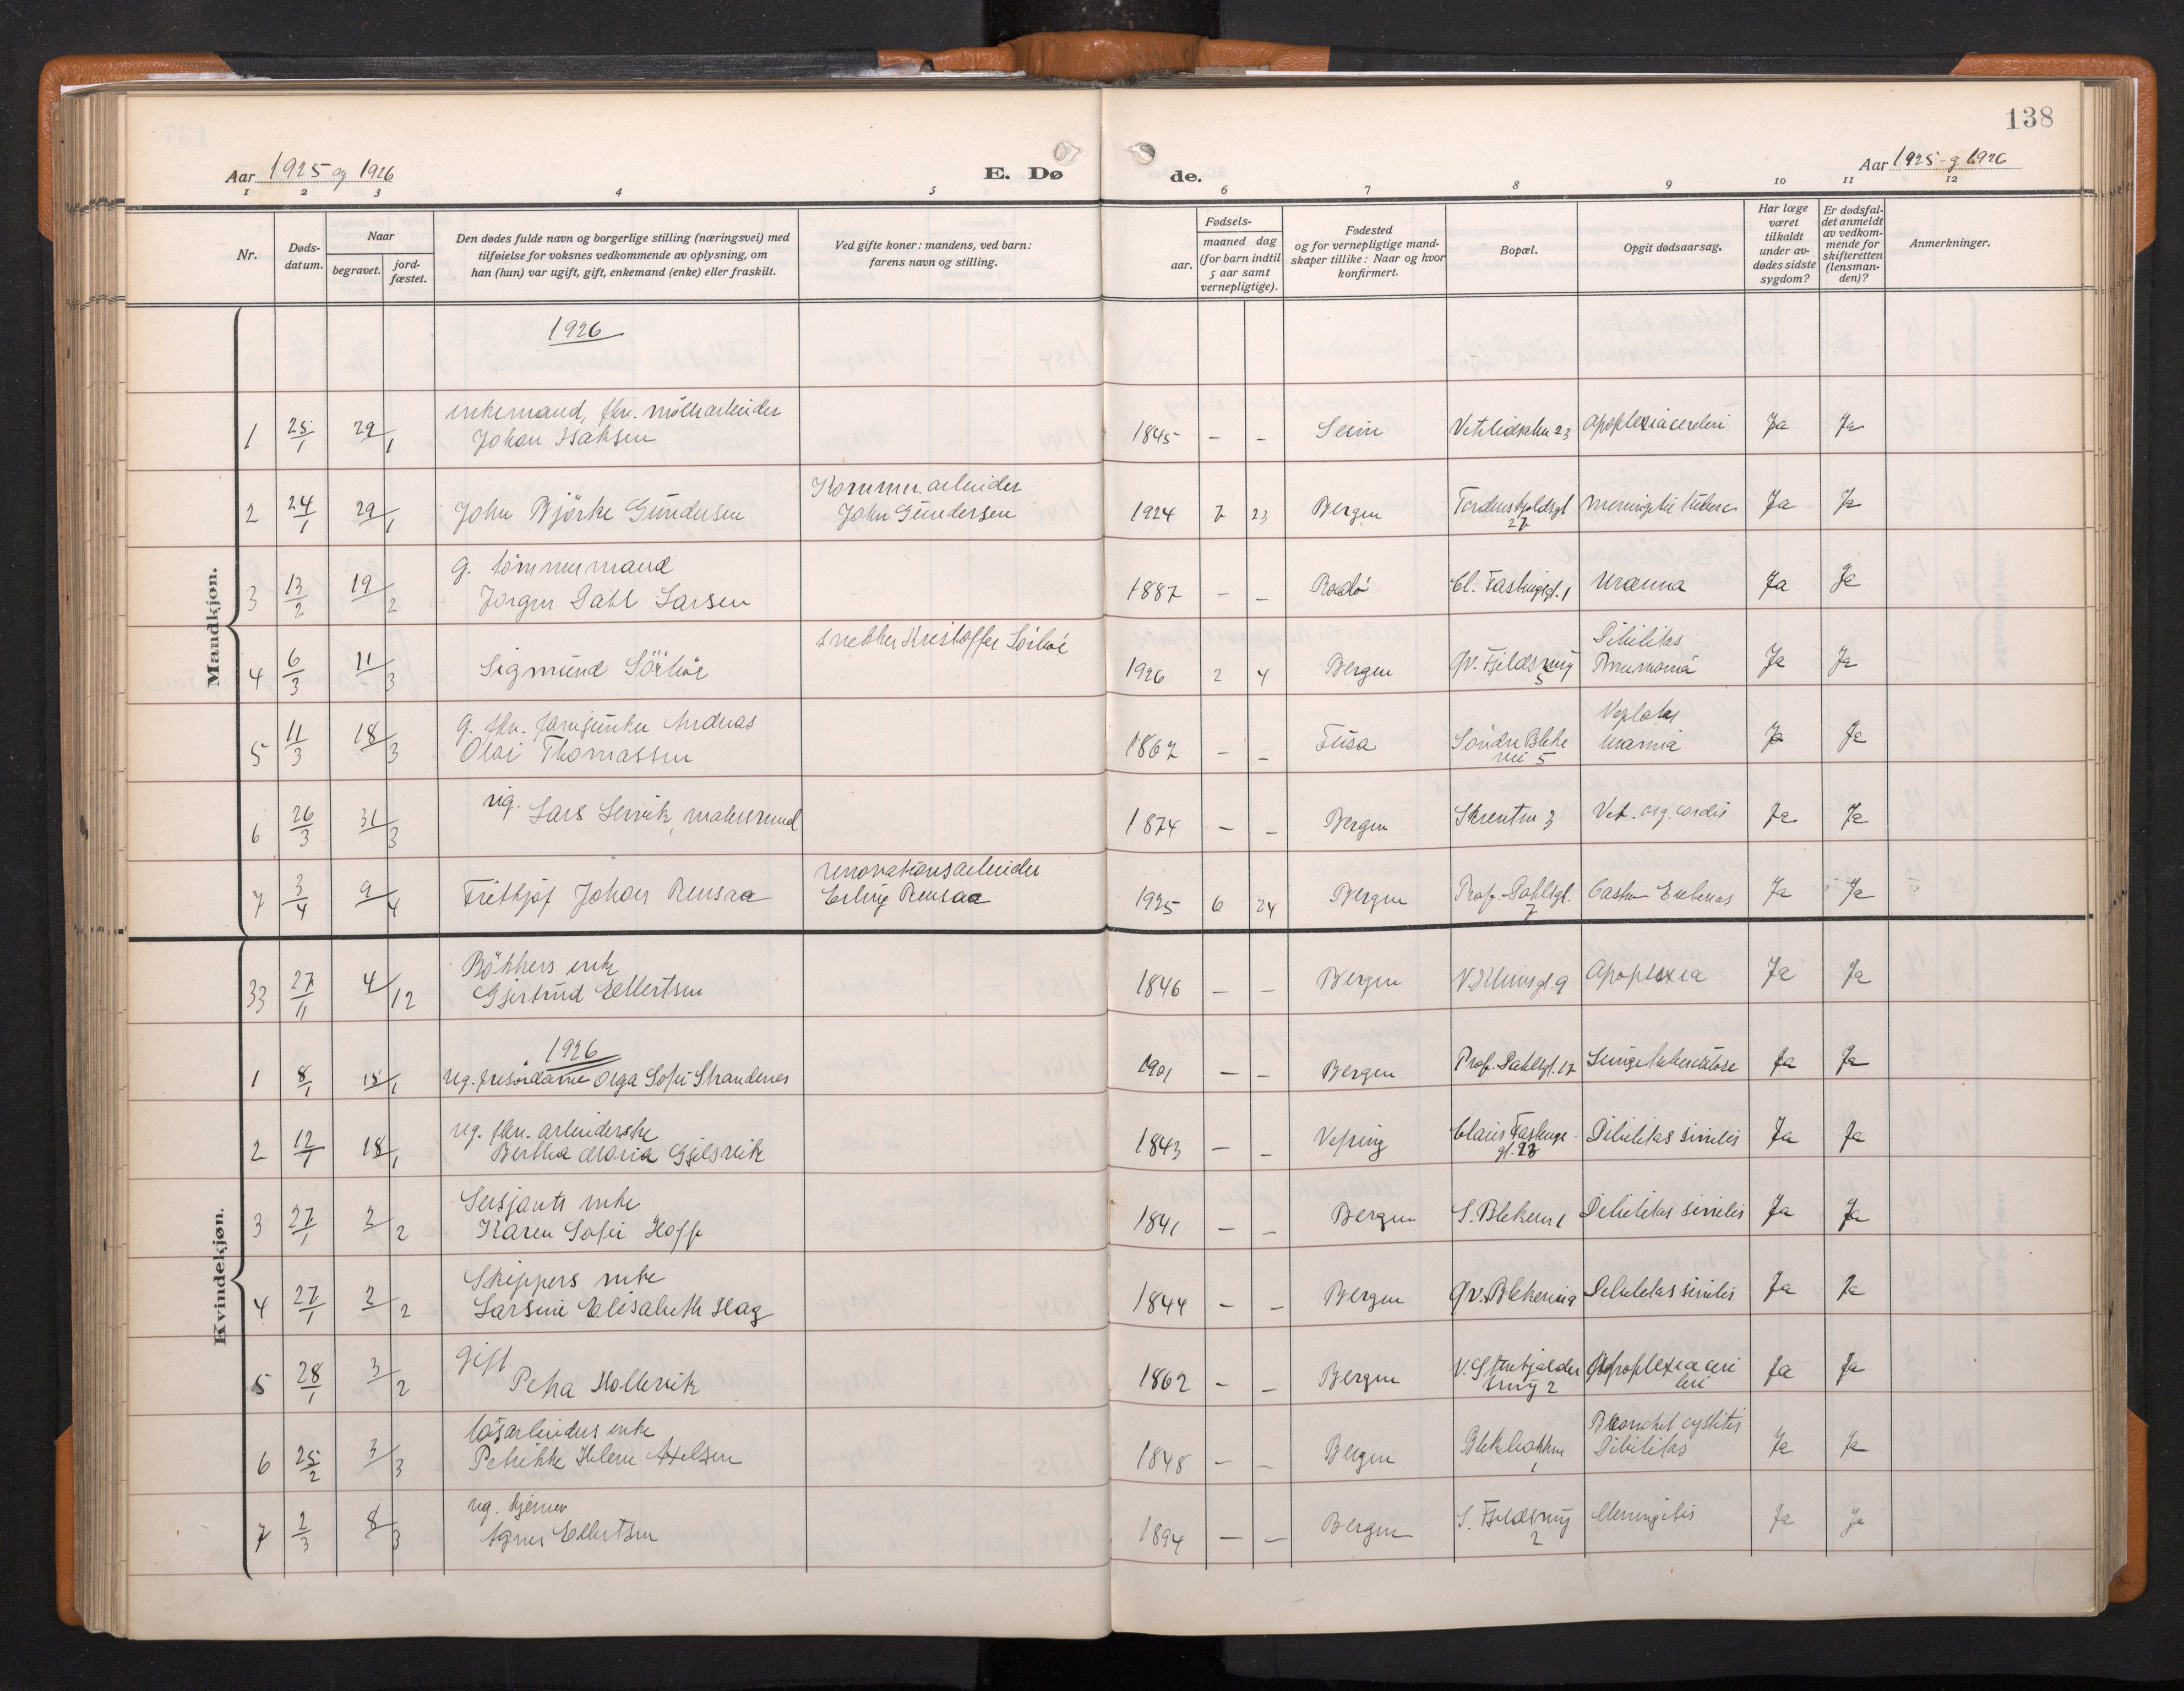 138
Aar 1925 og 1926
E. Dø
de.
Aar 1925 - og 1926
1 2 3 4 5 6 7 8 9 10 11 12
Nr.
Døds-
datum.
Naar
begravet.
jord-
fæstet.
Den dødes fulde navn og borgerlige stilling (næringsvei) med
tilføielse for voksnes vedkommende av oplysning, om
han (hun) var ugift, gift, enkemand (enke) eller fraskilt.
Ved gifte koner: mandens, ved barn:
farens navn og stilling.
Fødsels-
aar.
maaned dag
(for barn indtil
5 aar samt
vernepligtige).
Fødested
og for vernepligtige mand-
skaper tillike: Naar og hvor
konfirmert.
Bopæl.
Opgit dødsaarsag.
Har læge
været
tilkaldt
under av-
dødes sidste
sygdom?
Er dødsfal-
det anmeldt
av vedkom-
mende for
skifteretten
(lensman-
den)?
Anmerkninger.
Mandkjøn.
1926
enkemand, fhv. møllearbeider
1 25/1 29/1 Johan Isaksen 1845 - - Seim 23 Apoplexia cerebri Ja Ja
Kommu. arbeider
2 24/1 29/1 John Bjørke Gundersen John Gundersen 1924 7 23 Bergen Tordenskjoldsgt Ja Ja
27
g. tømmermand
3 13/2 19/2 Jørgen Dahl Larsen 1887 - - Radö Cl. Fastingsgt. 1 Uræmia Ja Ja
snekker Kristoffer Sörböe
Debilitas
4 6/3 11/3 Sigmund Sörböe 1926 2 4 Bergen Øv. Fjeldsmug Pneumonia Ja Ja
5
g. fhv. Andreas
Neoplasma
5 11/3 18/3 Olai Thomassen 1867 - - Fusa Söndre Bleke Uræmia Ja Ja
vei 5
ug.
6 26/3 31/3 Lars Lervik, malersvend 1874 - - Bergen Skrenten 3 Vit. org. cordis Ja Ja
renovationsarbeider
7 3/4 9/4 Fritjof Johan Rensaa Erling Rensaa 1925 6 24 Bergen Prof. Dahlsgt. Gastro Enteritis Ja Ja
7
Kvindekjøn.
Bökkers enke
33 27/11 4/12 Gjertrud Ellertsen 1846 - - Bergen 9 Apoplexia Ja Ja
1926
1 8/1 15/1 ug. frisördame Olga Sofie Strandenes 1901 - - Bergen Prof. Dahlsgt. 17 Lungetuberculose Ja Ja
ug. fhv. arbeiderske
2 12/1 18/1 Bertha Maria Gjelsvik 1843 - - Vefring Claus Fastings- Debilitas senilis Ja Ja
gt. 23
Sersjants enke
3 27/1 2/2 Karen Sofie Hoff 1841 - - Bergen S. Blekevei 1 Debilitas senilis Ja Ja
Skippers enke
4 27/1 2/2 Larsine Elisabeth Hag 1844 - - Bergen Øv. Blekevei 9 Debilitas senilis Ja Ja
gift
5 28/1 3/2 Petra Hollevik 1862 - - Bergen V. Apoplexia cere Ja Ja
smug 2 bri
lösarbeiders enke
Bronchit cystitis
6 25/2 3/3 Petrikke Helene Axelsen 1848 - - Bergen Blekebakken Debilitas Ja Ja
1
ug. hjemmev
7 2/3 8/3 Agnes Ellertsen 1894 - - Bergen S. Fjeldsmug Meningitis Ja Ja
2